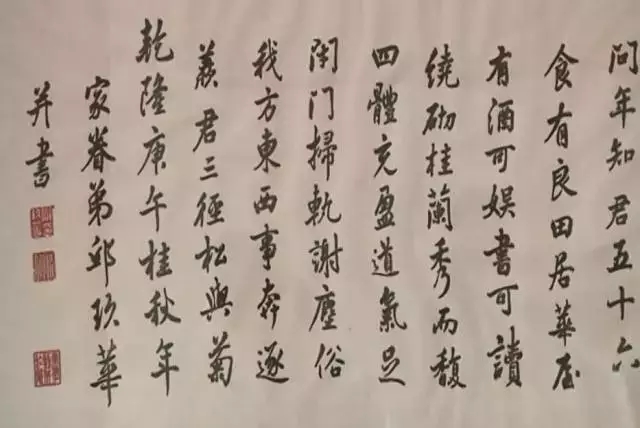 问年知君五十六
食有良田居華屋
有酒可娱書可讀
繞砌桂蘭秀而馥
四體充盈道氣足
閉门掃軌謝塵俗
我方東西事奔逐
羨君三徑松與菊
乾隆庚午桂秋年
家眷弟邱玖華
并書